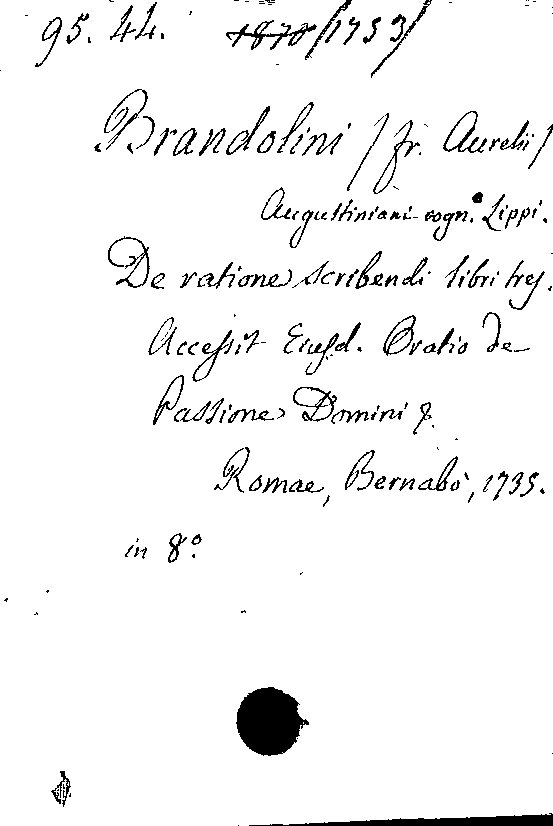 95. 44. 1870/1753/
Brandolini /fr. Aurelii/
Augustiniani cogn.o Lippi.
De ratione scribendi libri tres.
Accessit Eiusd. Oratio de
Passione Domini &.
Romae, Bernabò, 1735.
in 8.o